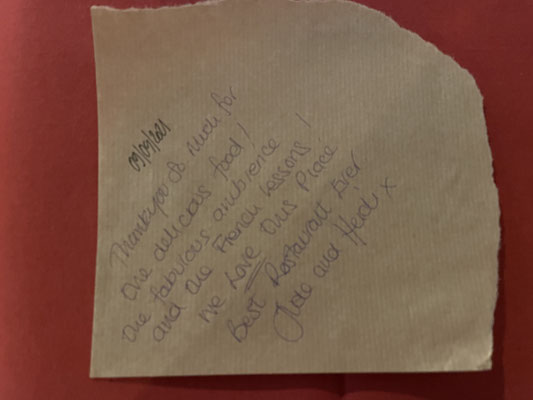 09/09/2021
Thankyou so much for
the delicious food!
the fabulous ambience
and the French Lessons!
We Love this Place
Best Restaurant Ever
and Heidi x